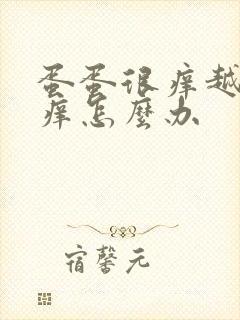 蛋蛋很痒越
痒怎麼办
宿馨元